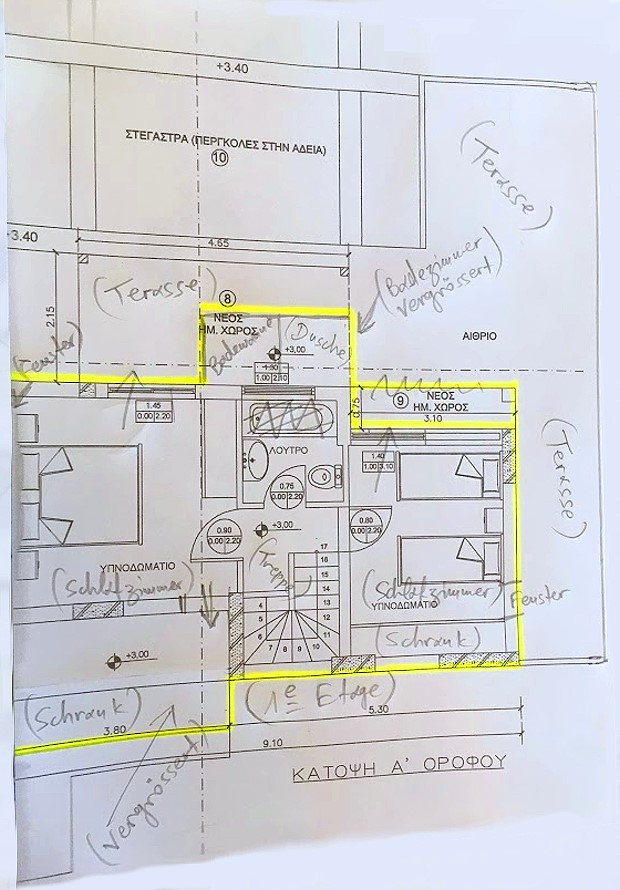 +3.40
ΣΤΕΓΑΣΤΡΑ (ΠΕΡΓΚΟΛΕΣ ΣΤΗΝ ΑΔΕΙΑ)
10
(Terasse)
-3.40
4.65
(Badezimmer
vergrössert)
(Terasse)
8
ΝΕΟΣ
ΗΜ. ΧΩΡΟΣ
Badewanne
(Dusche)
+3,00
2.15
ΑΙΘΡΙΟ
Fenster)
1.00 2.10
1.45
0.00 2.20
0.75
9
ΝΕΟΣ
ΗΜ. ΧΩΡΟΣ
3.10
ΛΟΥΤΡΟ
1.40
1.00 3.10
(Terasse)
0.75
0.00 2.20
0.90
0.00 2.20
+3,00
0.80
0.00 2.20
(Treppe)
ΥΠΝΟΔΩΜΑΤΙΟ
(Schlafzimmer)
17
16
15
14
13
12
11
10
9
8
7
6
5
4
(Schlafzimmer)
ΥΠΝΟΔΩΜΑΤΙΟ
Fenster
(Schrank)
+3,00
(Schrank)
3.80
(1e Etage)
5.30
9.10
(vergrössert)
ΚΑΤΟΨΗ Α' ΟΡΟΦΟΥ